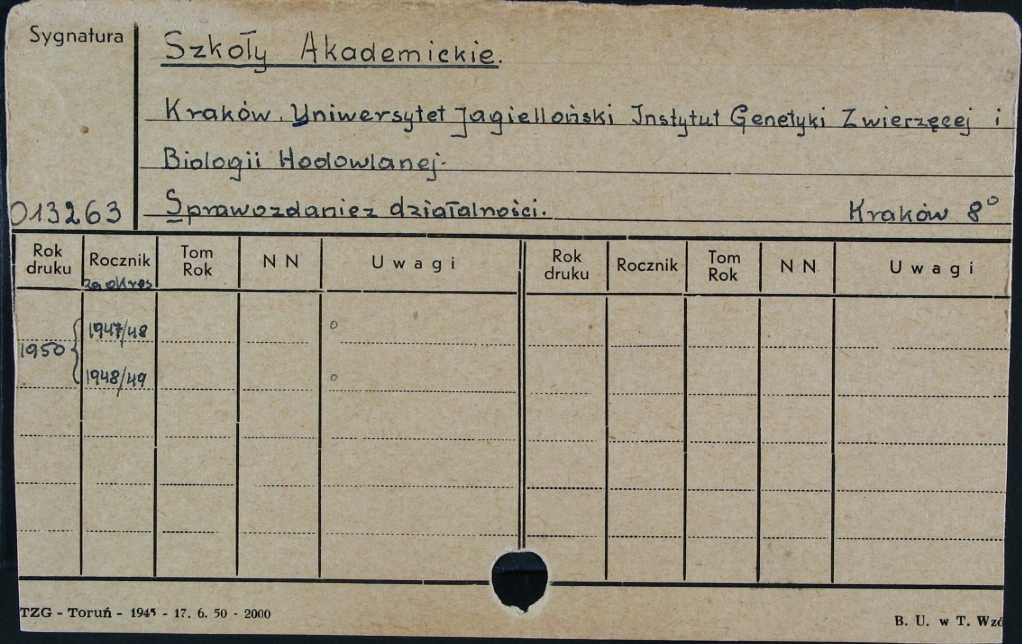 Sygnatura
Szkoły Akademickie.
Kraków. Uniwersytet Jagielloński Instytut Genetyki Zwierzęcej i
Biologii Hodowlanej.
013263 Sprawozdanie z działalności. Kraków 8°
Rok druku Rocznik Tom Rok N N Uwagi Rok druku Rocznik Tom Rok N N Uwagi
za okres
1947/48 o
1950
1948/49 o
TZG - Toruń - 1945 - 17. 6. 50 - 2000 B. U. w T. Wzó